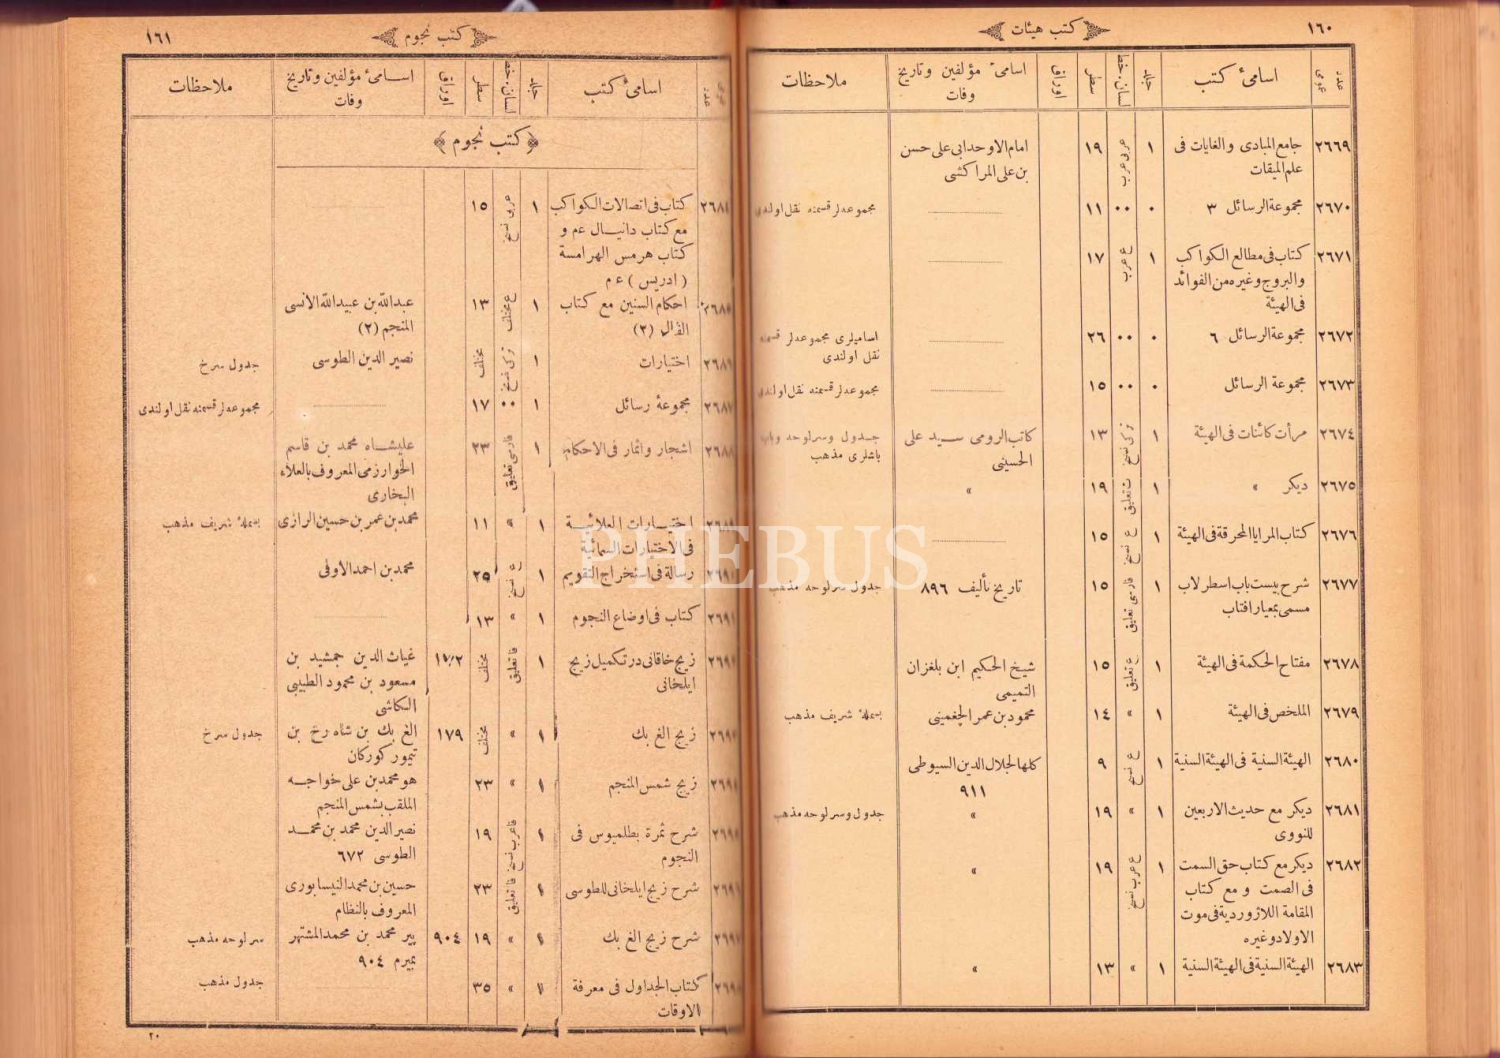 ١٦٠
كتب هيئات
عدد عمومى
اسامئ كتب
جلد
لسان. خط
سطر
اوراق
اسامئ مؤلفين وتاريخ وفات
ملاحظات
٢٦٦٩ جامع المبادى والغايات فى ١ عربى عرب ١٩ امام الاوحد ابى على حسن
علم الميقات بن على المراكشى
٢٦٧٠ مجموعة الرسائل ٣ ٠ ٠٠ ١١ مجموعه لر قسمنه نقل اولندى
٢٦٧١ كتاب فى مطالع الكواكب ١ ع عرب ١٧
والبروج وغيره من الفوائد
فى الهيئة
٢٦٧٢ مجموعة الرسائل ٦ ٠ ٠٠ ٢٦ اساميلرى مجموعه لر قسمنه
نقل اولندى
٢٦٧٣ مجموعة الرسائل ٠ ٠٠ ١٥ مجموعه لر قسمنه نقل اولندى
٢٦٧٤ مرأت كائنات فى الهيئة ١ تركى نسخ ١٣ كاتب الرومى سيد على جدول وسرلوحه
الحسينى باشلرى مذهب
٢٦٧٥ ديكر » ١ ت تعليق ١٩ »
٢٦٧٦ كتاب المرايا المحرقة فى الهيئة ١ ع نسخ ١٥
٢٦٧٧ شرح بيست باب اسطرلاب ١ فارسى تعليق ١٥ تاريخ تأليف ٨٩٦ جدول سرلوحه مذهب
مسمى بمعيار افتاب
٢٦٧٨ مفتاح الحكمة فى الهيئة ١ ع تعليق ١٥ شيخ الحكيم ابن بلغزان
التميمى
٢٦٧٩ الملخص فى الهيئة ١ » ١٤ محمود بن عمر الچغمينى بسملۀ شريف مذهب
٢٦٨٠ الهيئة السنية فى الهيئة السنية ١ ع نسخ ٩ كلها لجلال الدين السيوطى
٩١١
٢٦٨١ ديكر مع حديث الاربعين ١ » ١٩ » جدول وسرلوحه مذهب
للنووى
٢٦٨٢ ديكر مع كتاب حق السمت ١ ع عرب نسخ ١٩ »
فى الصمت و مع كتاب
المقامة اللازوردية فى موت
الاولاد وغيره
٢٦٨٣ الهيئة السنية فى الهيئة السنية ١ » ١٣ »
١٦١
كتب نجوم
عدد عمومى
اسامئ كتب
جلد
لسان. خط
سطر
اوراق
اسامئ مؤلفين وتاريخ وفات
ملاحظات
كتب نجوم
كتاب فى اتصالات الكواكب ١ عربى نسخ ١٥
مع كتاب دانيال عم و
كتاب هرمس الهرامسة
(ادريس) عم
احكام السنين مع كتاب ١ ع مختلف ١٣ عبدالله بن عبيدالله الأنسى
الفال (٢) المنجم (٢)
اختيارات ١ تركى نسخ مختلف نصير الدين الطوسى جدول سرخ
مجموعۀ رسائل ١ ٠٠ ١٧ مجموعه لر قسمنه نقل اولندى
اشجار واثمار فى الاحكام ١ فارسى تعليق ٢٣ عليشاه محمد بن قاسم
الخوارزمى المعروف بالعلاء
البخارى
اختيارات العلائية ١ » ١١ محمد بن عمر بن حسين الرازى بسملۀ شريف مذهب
فى الاختيارات السمائية
رسالة فى استخراج التقويم ١ ع نسخ ٢٥ محمد بن احمد الاوفى
كتاب فى اوضاع النجوم ١ » ١٣
زيج خاقانى در تكميل زيج ١ فا تعليق مختلف غياث الدين جمشيد بن
ايلخانى مسعود بن محمود الطبيبى
الكاشى
زيج الغ بك ١ » مختلف ١٧٩ الغ بك بن شاه رخ بن جدول سرخ
تيمور كوركان
زيج شمس المنجم ١ » ٢٣ هو محمد بن على خواجه
الملقب بشمس المنجم
شرح ثمرة بطلميوس فى ١ فا عرب نسخ ١٩ نصير الدين محمد بن محمد
النجوم الطوسى ٦٧٢
شرح زيج ايلخانى للطوسى ١ فا تعليق ٢٣ حسين بن محمد النيسابورى
المعروف بالنظام
شرح زيج الغ بك ١ » ١٩ ٩٠٤ پير محمد بن محمد المشتهر سرلوحه مذهب
بميرم ٩٠٤
كتاب الجداول فى معرفة ١ » ٣٥ جدول مذهب
الاوقات
٢٠
PHEBUS